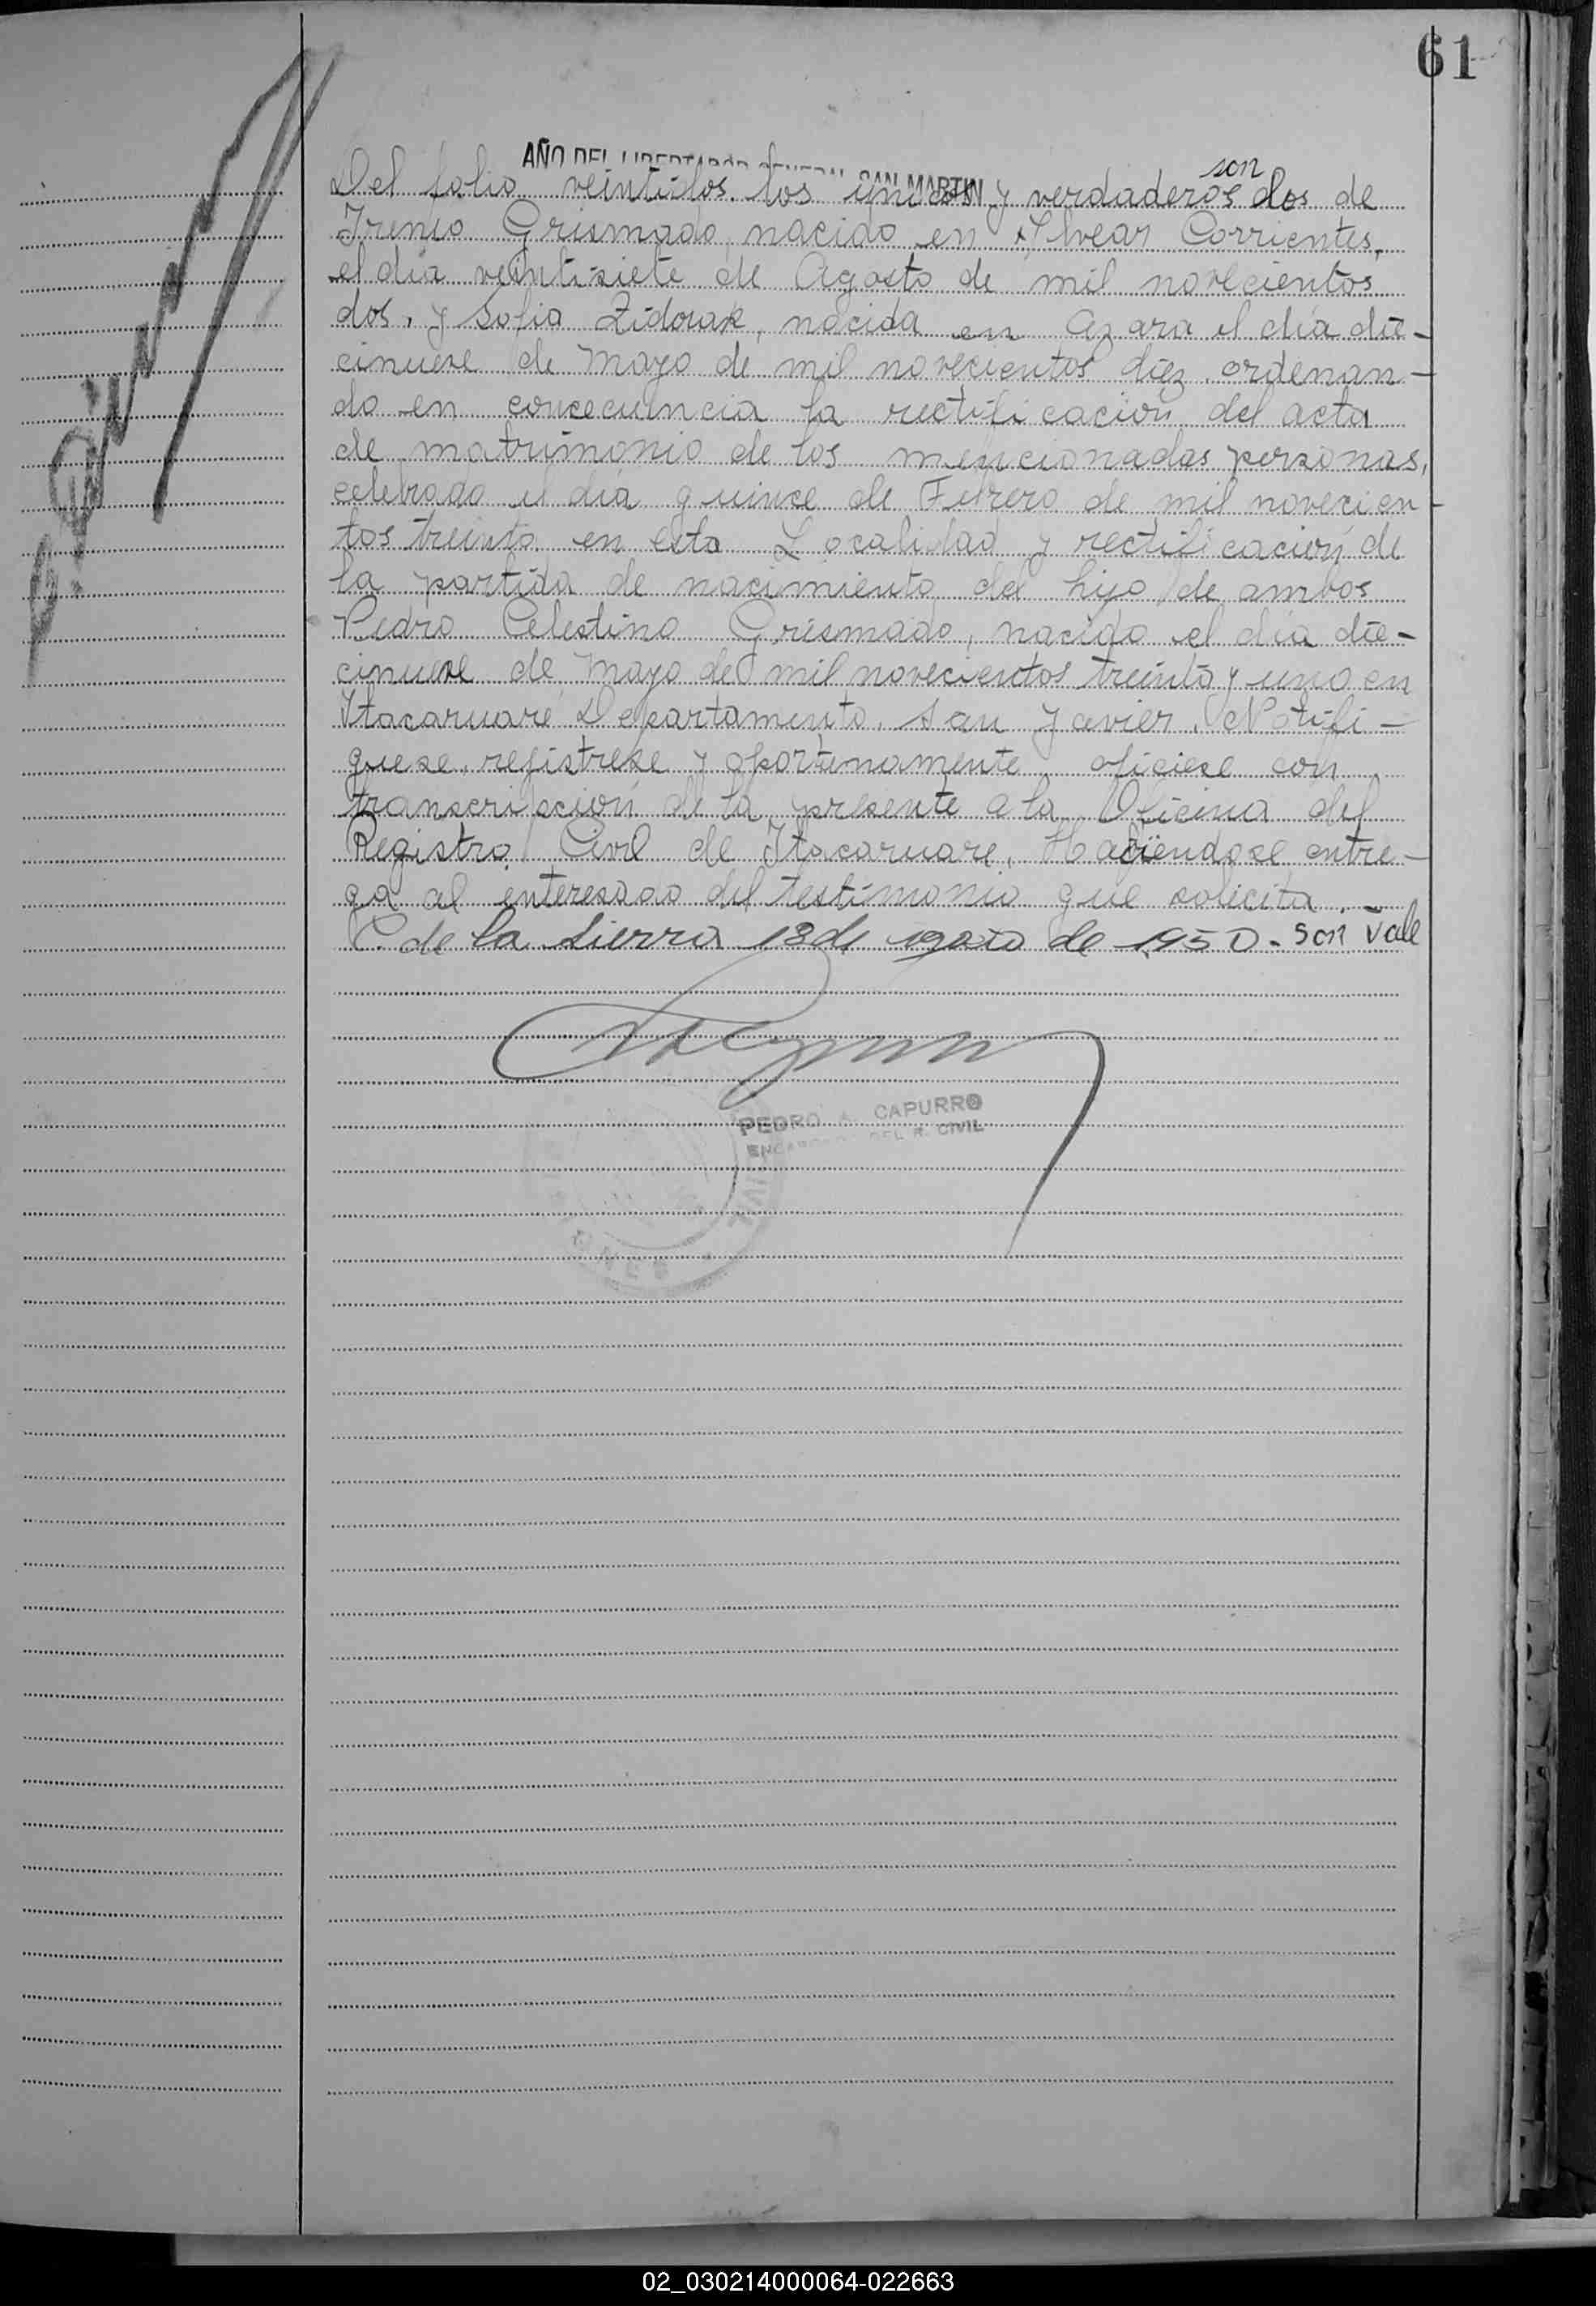 61
AÑO DEL LIBERTADOR GENERAL SAN MARTIN
son
Del folio veintidos. los unicos y verdaderos dos de
Irenio Grismado, nacido en Alvear Corrientes,
el día veintisiete de Agosto de mil novecientos
dos, y Sofia Zidorak, nacida en Azara el día die-
cinueve de Mayo de mil novecientos diez, ordenan-
do en concecuencia la rectificación del acta
de matrimonio de los mencionadas personas,
celebrado el día quince de Febrero de mil novecien-
tos treinta en esta Localidad y rectificación de
la partida de nacimiento del hijo de ambos
Pedro Celestino Grismado, nacido el día die-
cinueve de Mayo de mil novecientos treinta y uno en
Itacaruaré Departamento, San Javier. Notifi-
quese, registrese y oportunamente oficiese con
transcripción de la presente a la Oficina del
Registro Civil de Itacaruare, Haciendose entre-
ga al interesado del testimonio que solicita.
C. de la Sierra 18 de agosto de 1950. - son vale
PEDRO A. CAPURRO
ENCARGADO DEL R. CIVIL
02_030214000064-022663